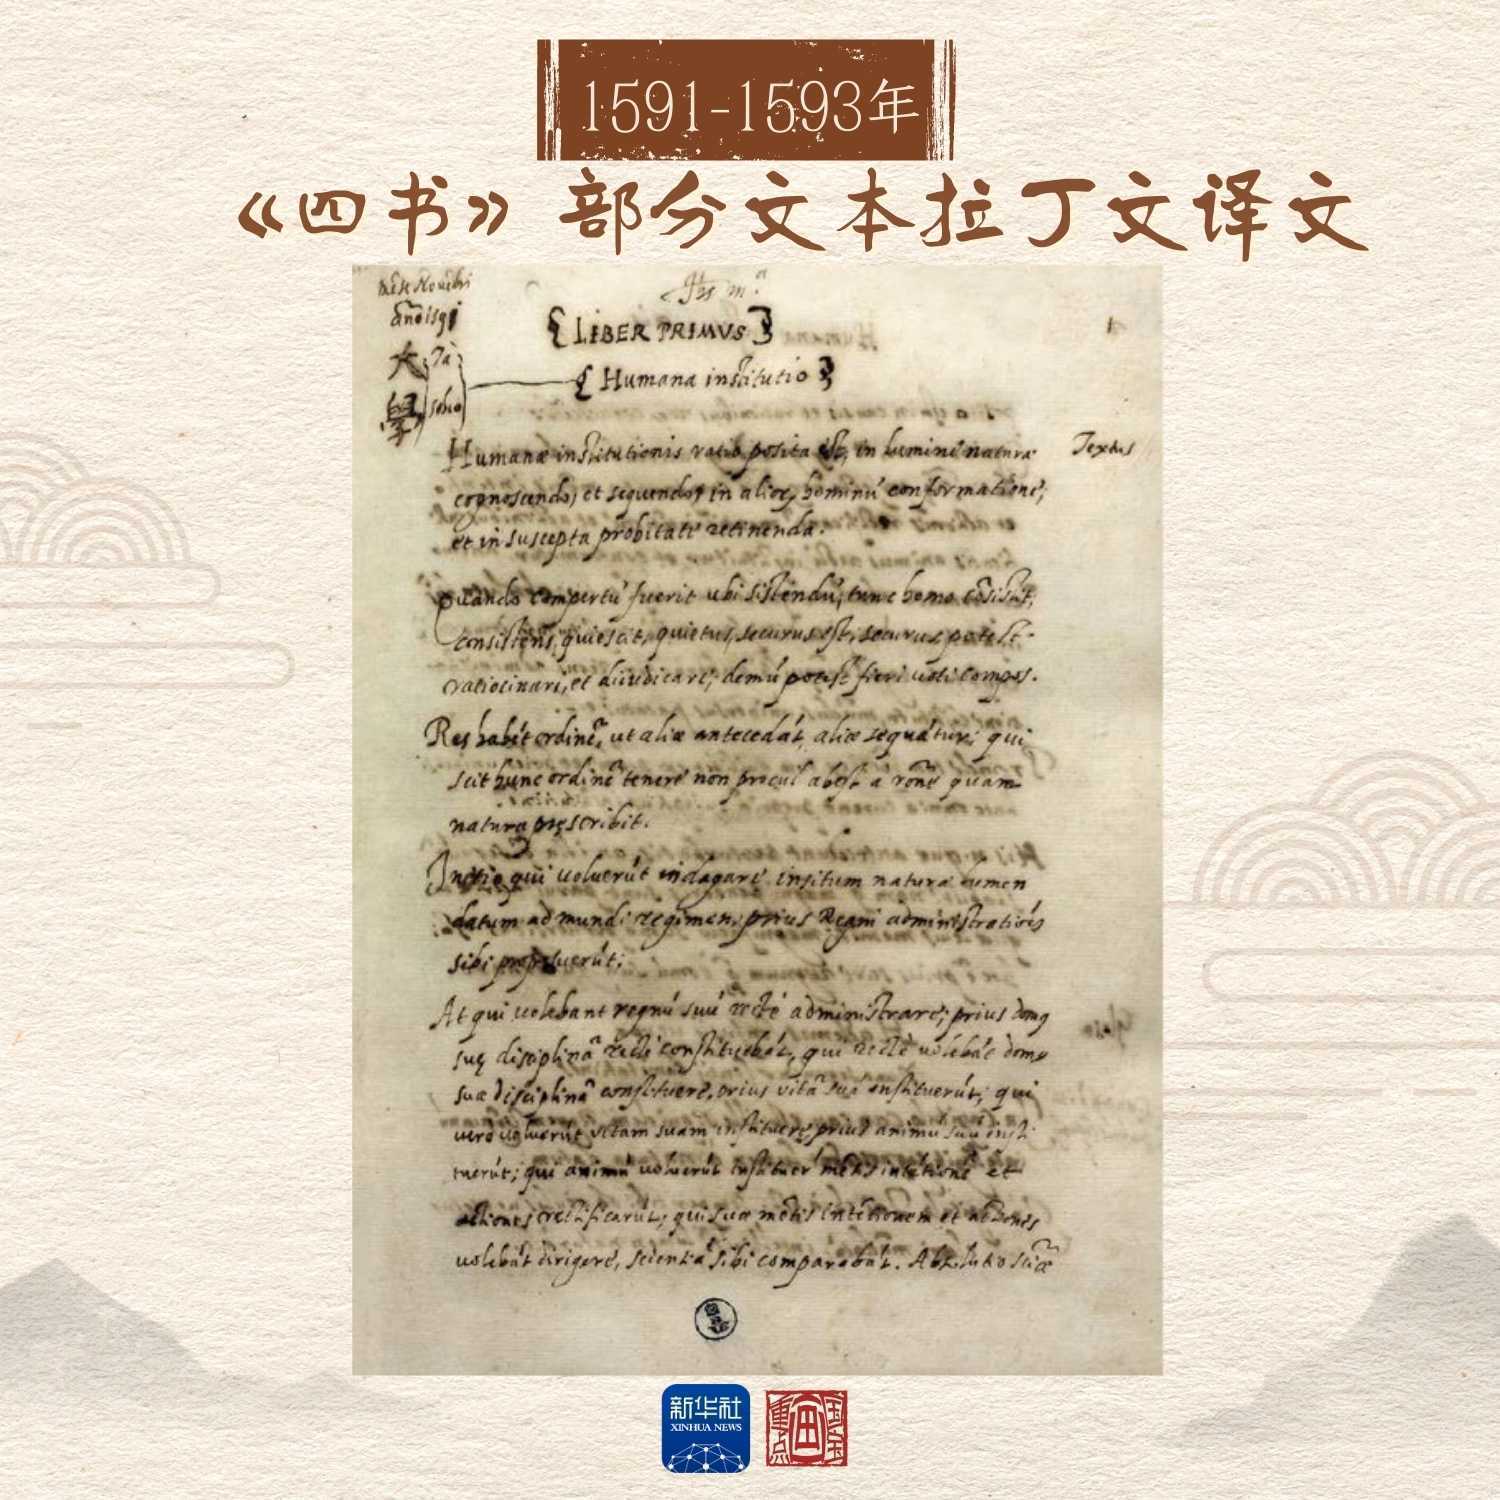 1591-1593年
《四书》部分文本拉丁文译文
Mēse Novēbri
anō 1591
Ihs mª
{LIBER PRIMUS}
大 Ta
學 schio
{Humana institutio}
Humanæ institutionis ratio posita est in lumine naturæ
Textus
cognoscendo, et sequendo, in alior, hominū conformatione,
et in suscepta probitate retinenda.
Quando compertū fuerit ubi sistendū, tunc homo cōsistit,
consistens quiescit, quietus, securus est, securus potest
ratiocinari, et diiudicare, demū potest fieri voti compos.
Res habēt ordinē, ut aliæ antecedāt, aliæ sequātur; qui
scit hunc ordinē tenere non procul abest à rōne quam
natura pręscribit.
qui voluerūt indagare insitum naturæ lumen
datum ad mundi regimen, prius Regni administrationēs
sibi
At qui volebant regnū suū rectè administrare, prius domꝰ
suę disciplinā rectè constituebāt, qui rectè volebāt domꝰ
suæ disciplinā constituere, prius vitā suā instituerūt, qui
verò voluerūt vitam suam instituere, prius animū suū insti
tuerūt; qui animū voluerūt instituere mētis intētionē et
actiones rectificarūt; qui suæ mētis intētionem et actiones
volebāt dirigere, scientiā sibi comparabāt. Absolutio sciē
新华社
XINHUA NEWS
重点
国宝